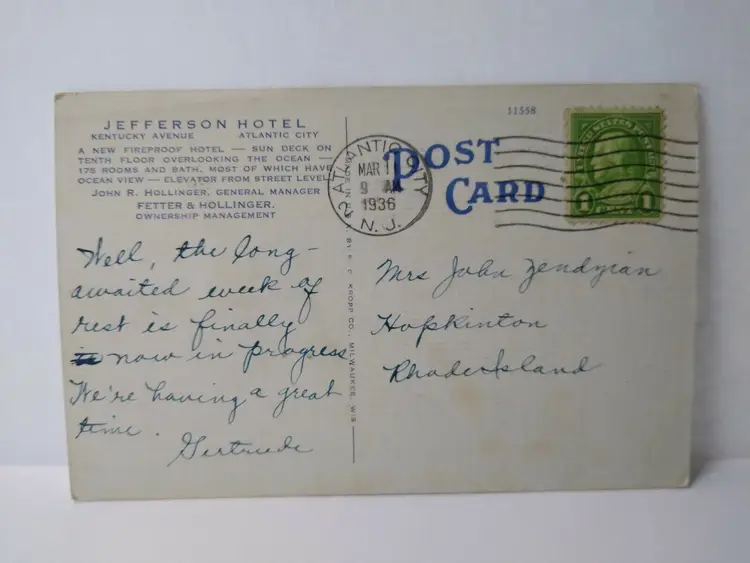 JEFFERSON HOTEL
KENTUCKY AVENUE ATLANTIC CITY
A NEW FIREPROOF HOTEL — SUN DECK ON
TENTH FLOOR OVERLOOKING THE OCEAN —
175 ROOMS AND BATH, MOST OF WHICH HAVE
OCEAN VIEW — ELEVATOR FROM STREET LEVEL
JOHN R. HOLLINGER, GENERAL MANAGER
FETTER & HOLLINGER,
OWNERSHIP MANAGEMENT
Well, the long-
awaited week of
rest is finally
now in progress
We're having a great
time.
Gertrude
KROPP CO., MILWAUKEE, WIS.
ATLANTIC CITY
MAR 1
9 AM
1936
N. J.
11558
POST
CARD
1 1
Mrs John Zendzian
Hopkinton
Rhode Island